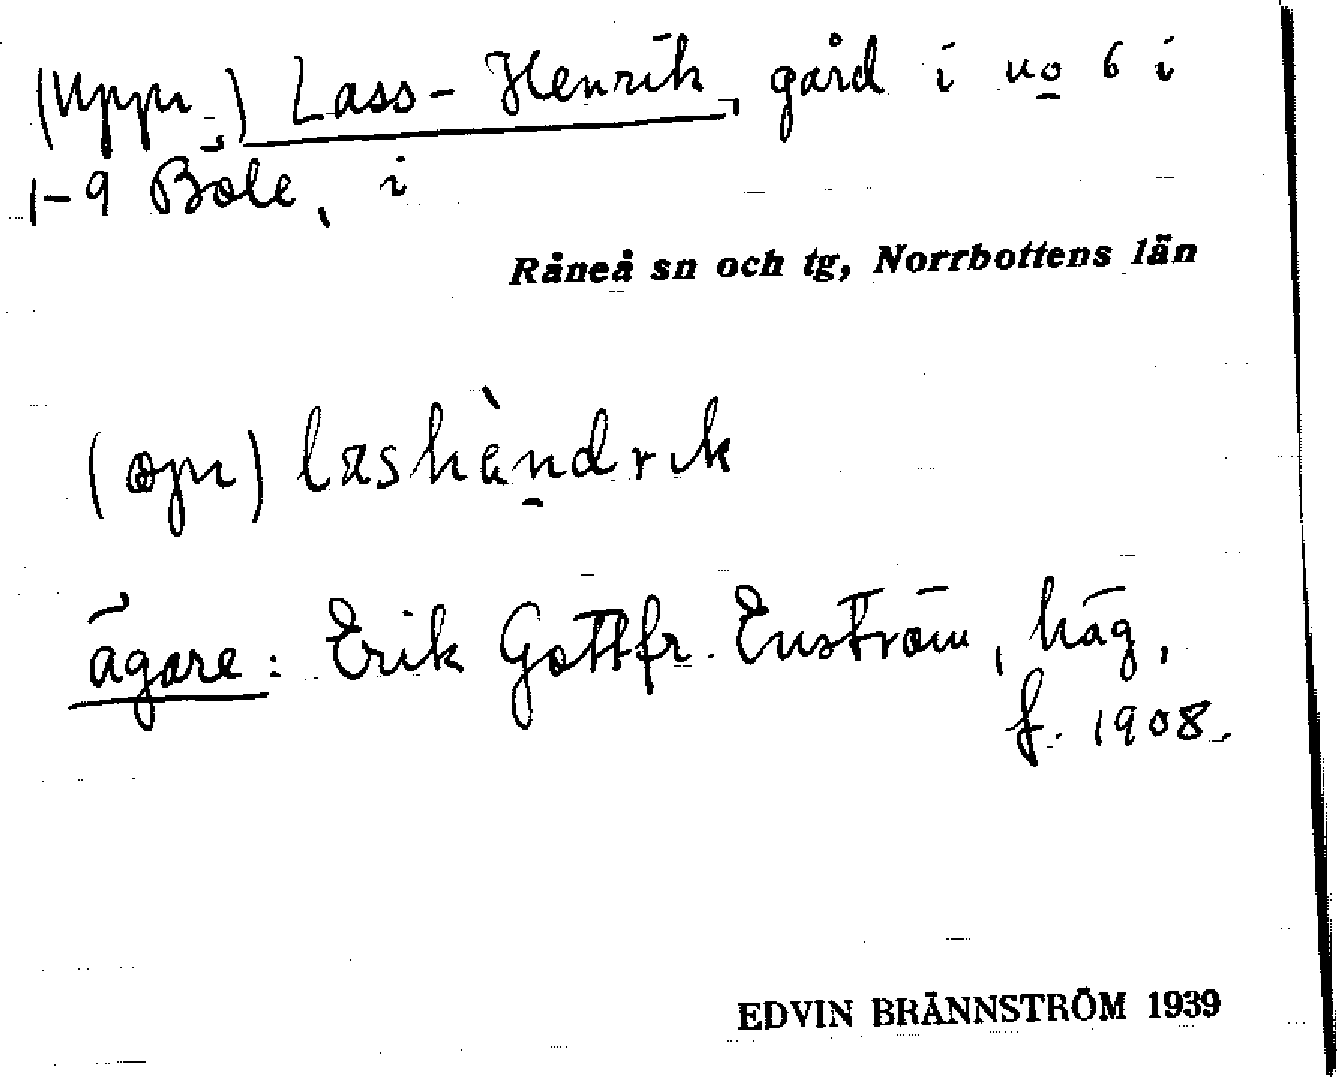 (Uppi) Lass-Henrik, gård i no 6 i
1-9 Böle, i
Råneå sn och tg, Norrbottens län
lashàndrik
ägare: Erik Gottfr. Enström, häg,
f. 1908.
EDVIN BRÄNNSTRÖM 1939